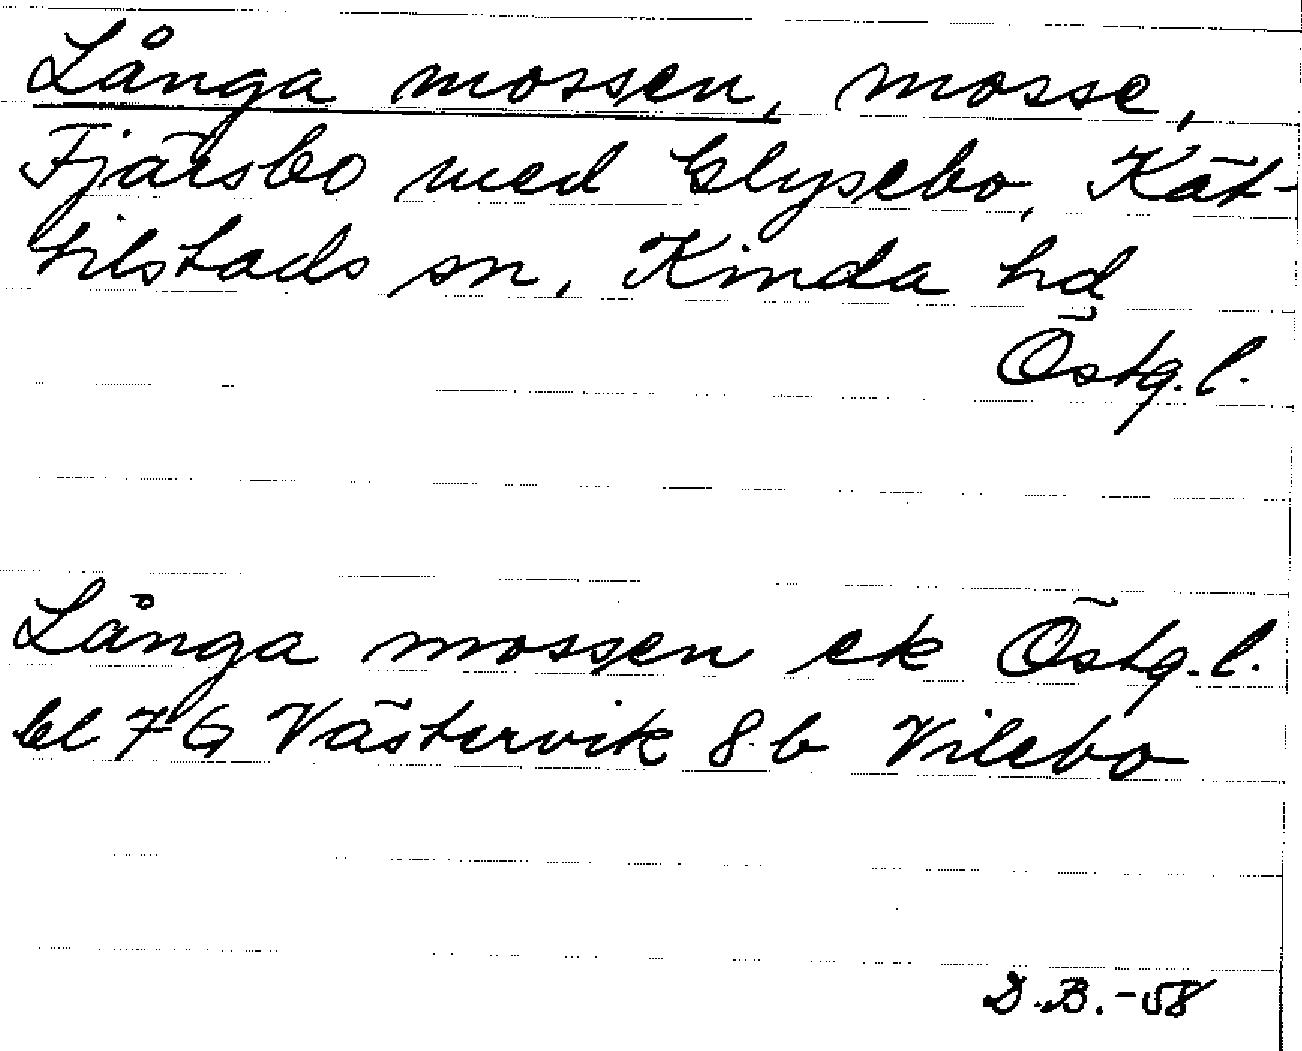 Långa mossen, mosse,
Fjärsbo med Glysebo, Kät-
tilstads sn, Kinda hd
Östg. l.
Långa mossen ek Östg. l.
bl 7 G Västervik 8 b Vilebo
D.B. -58